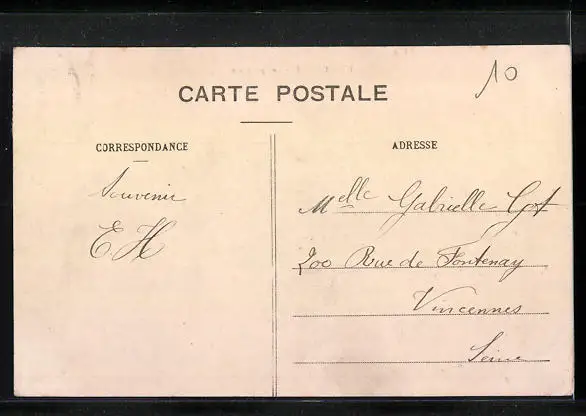 10
CARTE POSTALE
CORRESPONDANCE
ADRESSE
Souvenir
E H
Melle Gabrielle Got
200 Rue de Fontenay
Vincennes
Seine